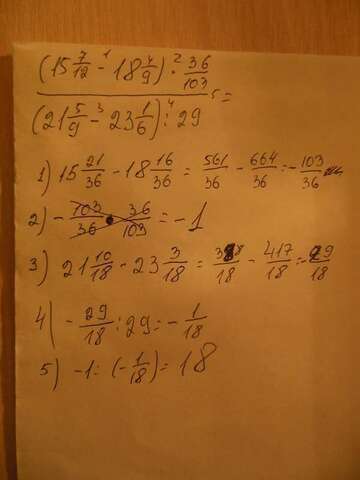 (15 7/12 - 18 4/9) · 36/103
(21 5/9 - 23 1/6) : 29 =
1) 15 21/36 - 18 16/36 = 561/36 - 664/36 = - 103/36
2) - 103/36 · 36/103 = -1
3) 21 10/18 - 23 3/18 = 388/18 - 417/18 = - 29/18
4) - 29/18 : 29 = - 1/18
5) -1 : (- 1/18) = 18